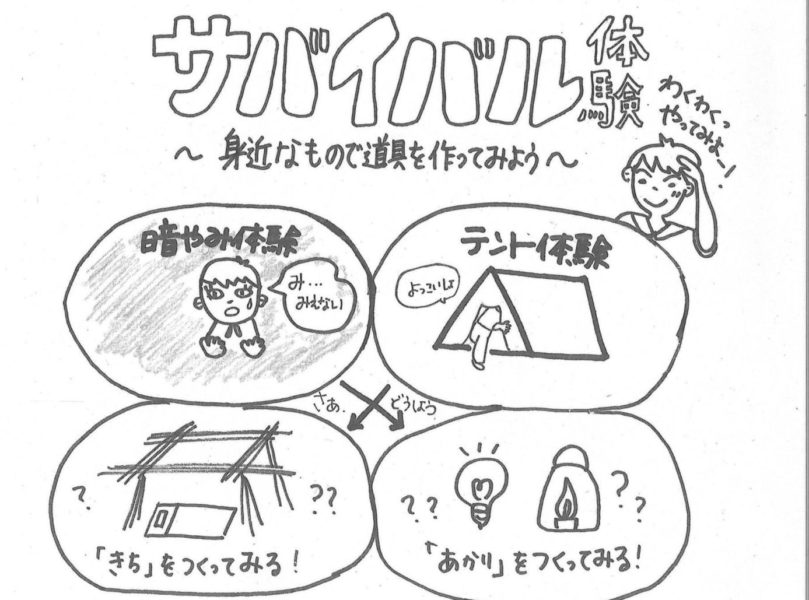 サバイバル体験
～身近なもので道具を作ってみよう～
わくわくっ
やってみよー！
暗やみ体験
み…
みえない
テント体験
よっこいしょ
さぁ、
どうしよう
?
??
「きち」をつくってみる！
??
??
「あかり」をつくってみる！